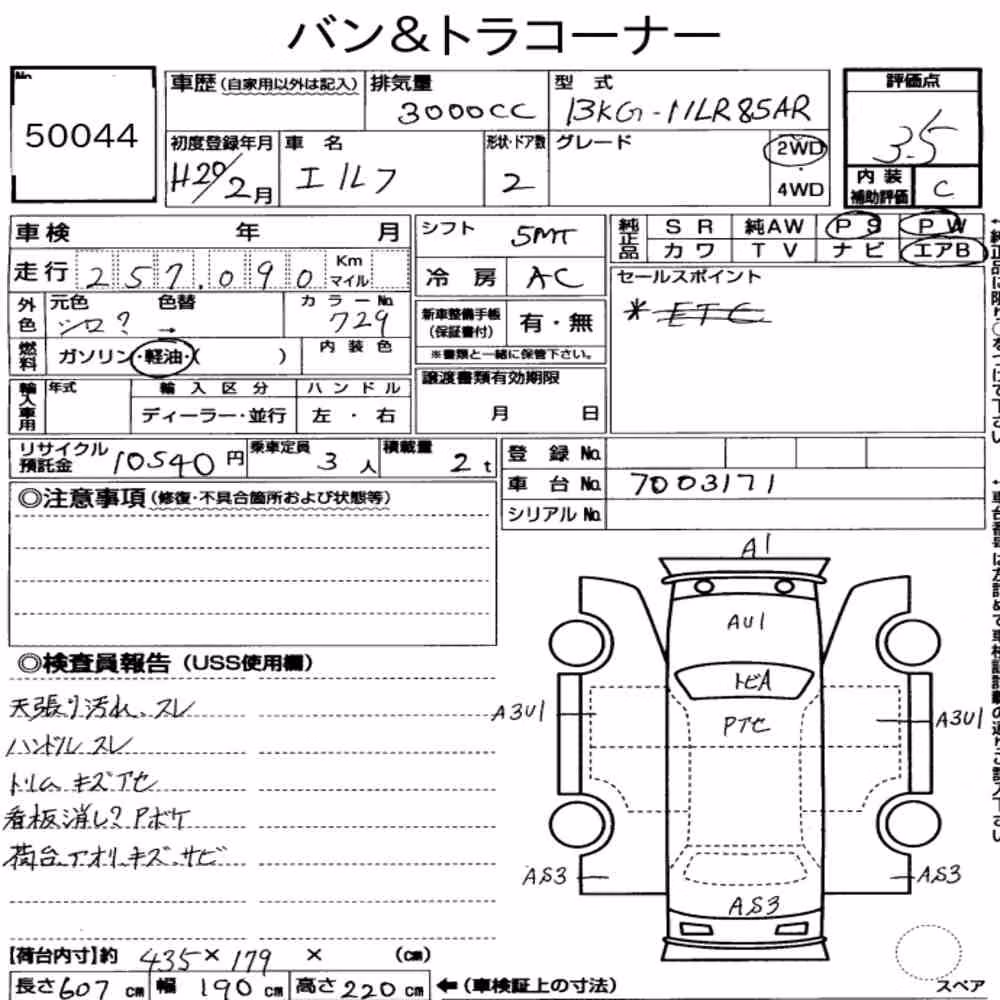 バン&トラコーナー
No.
50044
車歴 (自家用以外は記入)
排気量
3000CC
型式
BKG-NLR85AR
評価点
3.5
初度登録年月
H20/2月
車名
エルフ
形状・ドア数
2
グレード
2WD
4WD
内装
補助評価
C
車検 年 月
走行 257,090 Km マイル
外色
元色 シロ?
色替 →
カラーNo. 729
燃料 ガソリン・軽油・( )
内装色
輸入車用
年式
輸入区分
ディーラー・並行
ハンドル
左・右
シフト 5MT
冷房 AC
新車整備手帳
(保証書付)
有・無
※書類と一緒に保管下さい。
譲渡書類有効期限
月 日
純正品
SR 純AW PS PW
カワ TV ナビ エアB
セールスポイント
*ETC
リサイクル
預託金
10540 円
乗車定員 3 人
積載量 2 t
登録No.
車台No. 7003171
シリアルNo.
◎注意事項 (修復・不具合箇所および状態等)
◎検査員報告 (USS使用欄)
天張り汚れ、スレ
ハンドル スレ
トリム キズ アセ
看板消し? Pボケ
荷台、アオリ、キズ、サビ
A1
AU1
トビA
Pアセ
A3U1
A3U1
AS3
AS3
AS3
スペア
【荷台内寸】約 435×179 × (cm)
長さ607cm 幅190cm 高さ220cm ←(車検証上の寸法)